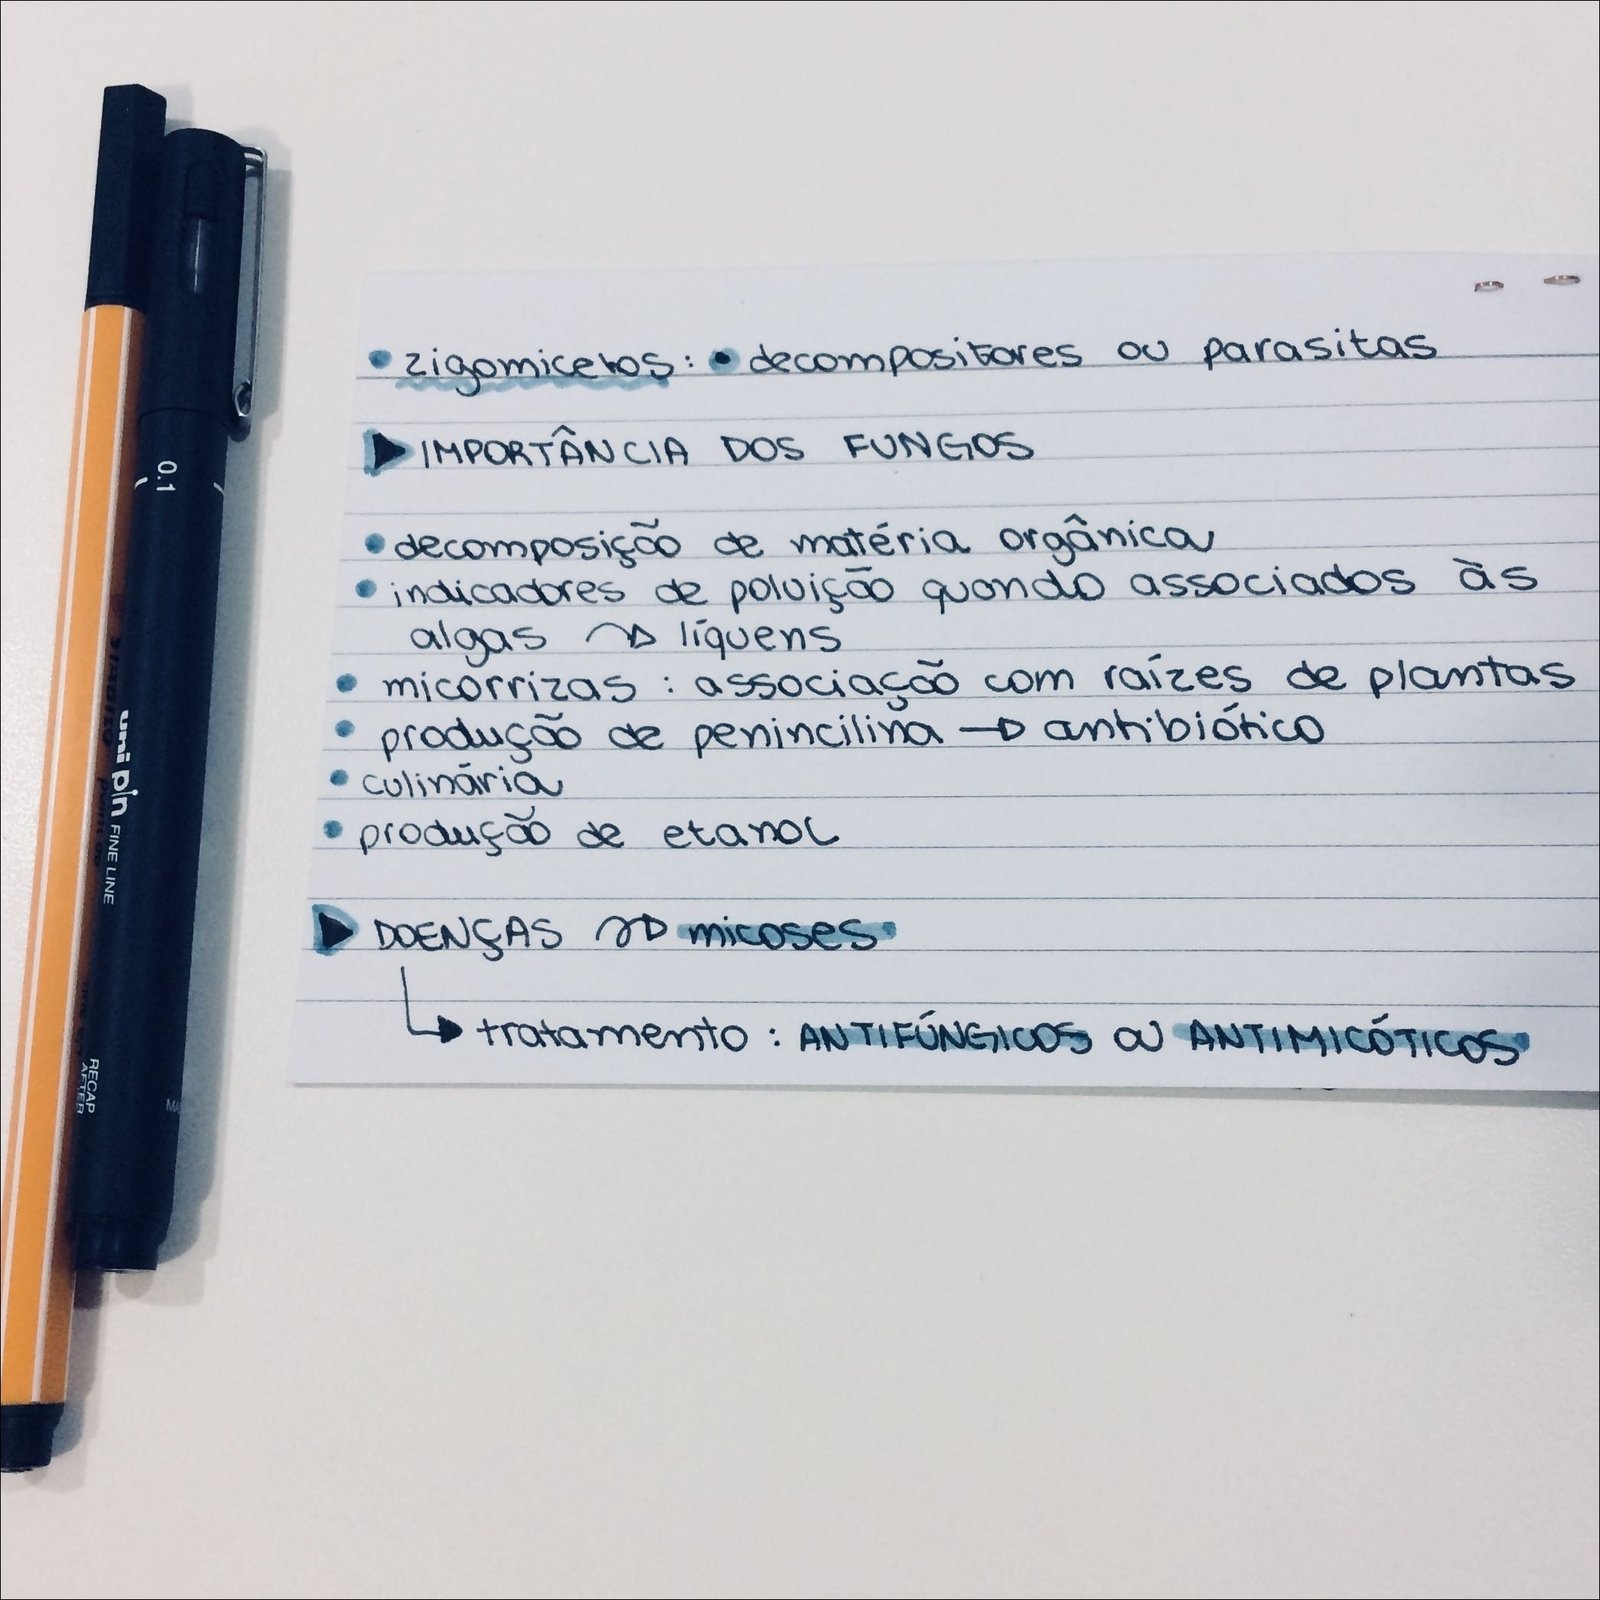 • zigomicetos: • decompositores ou parasitas
▶ IMPORTÂNCIA DOS FUNGOS
• decomposição de matéria orgânica
• indicadores de poluição quando associados às
algas ↝ líquens
• micorrizas : associação com raízes de plantas
• produção de penincilina → antibiótico
• culinária
• produção de etanol
▶ DOENÇAS ↝ micoses
↳ tratamento : ANTIFÚNGICOS ou ANTIMICÓTICOS
0.1
uni pin FINE LINE
RECAP
AFTER